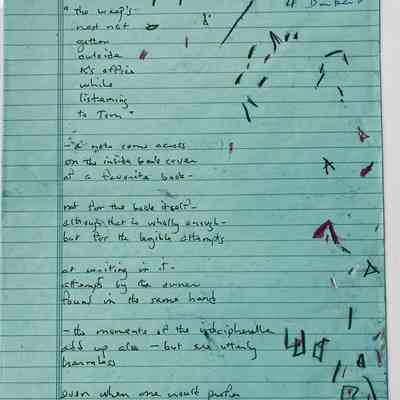 "the weep's
not
gotten
outside
K's office
while
listening
to Tom"
- a note come across
on the inside back cover
of a favorite book -
not for the book itself -
although that is wholly enough -
but for the legible attempts
at writing in it -
attempts by the owner
found in the same hand
- the moments of the indecipherable
add up also - but are utterly
harmless
even when one would prefer